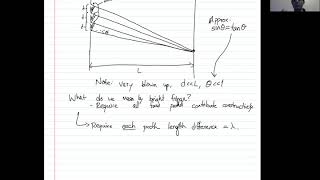 Approx.
sinθ≈tanθ
L
Note: very blown up, d<<L, θ<<1
What do we mean by bright fringe?
- Require all paths contribute constructively
Require each path length difference = λ.